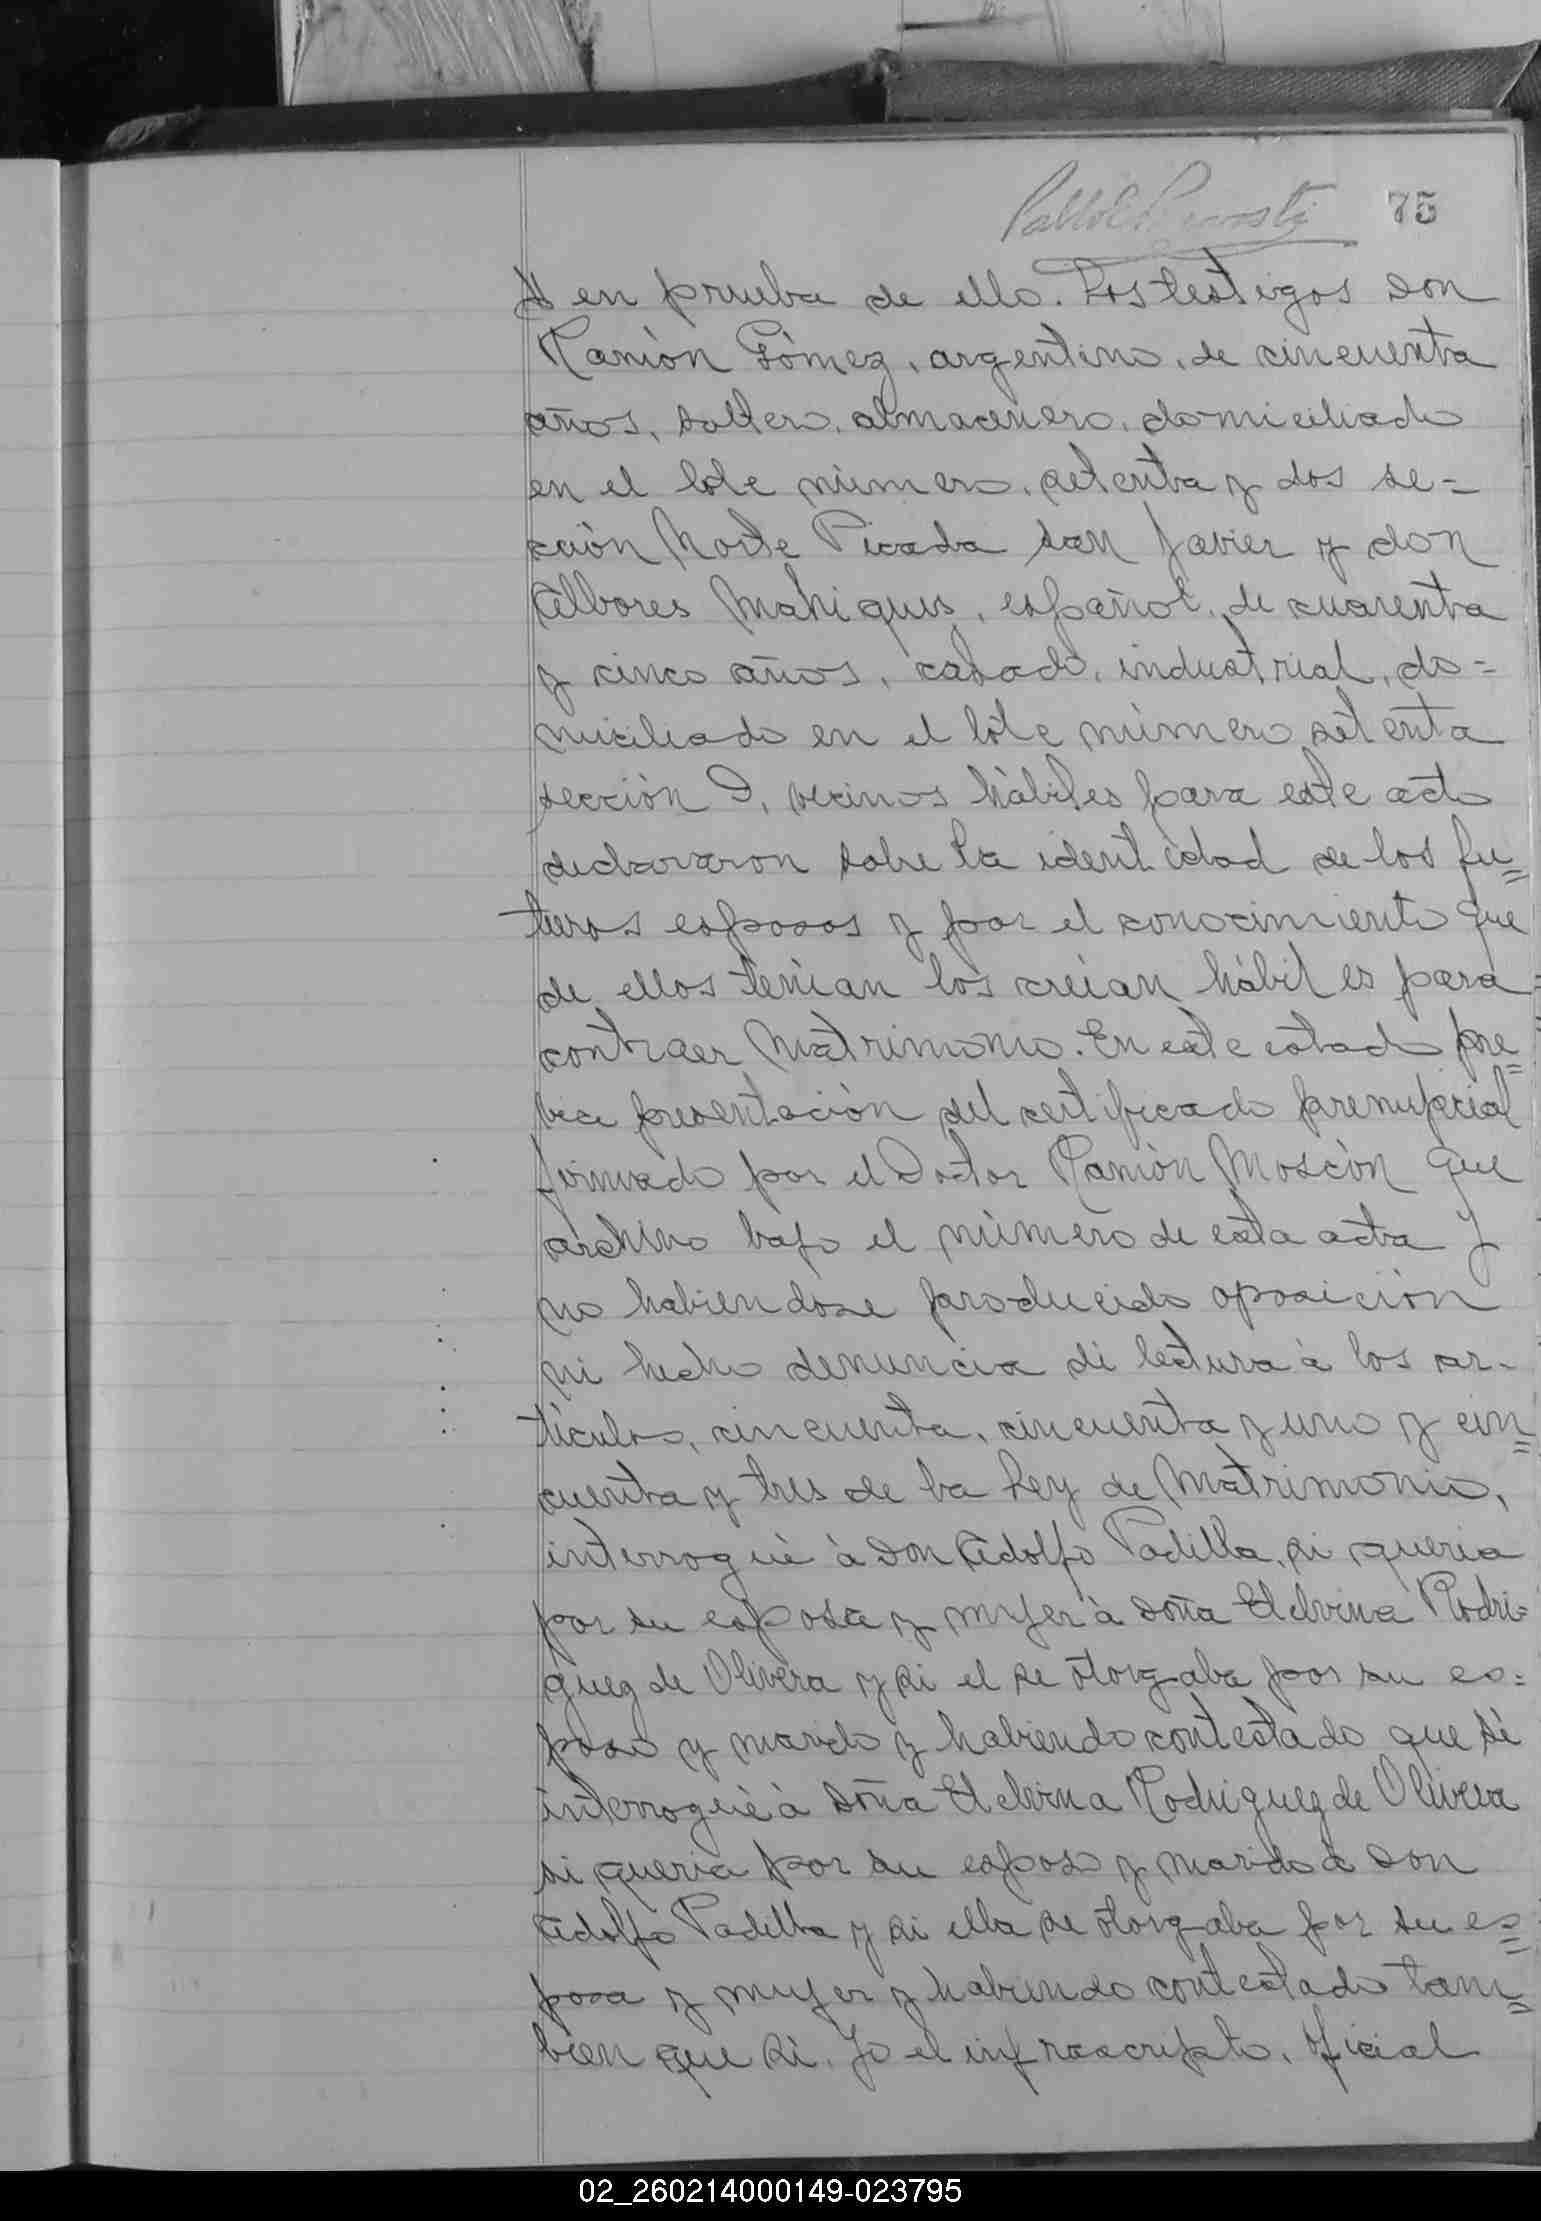 75
en prueba de ello. Los testigos don
Ramón Gómez, argentino, de cincuenta
años, soltero, almacenero, domiciliado
en el lote número setenta y dos se=
cción Norte Picada San Javier y don
Albores Mahiques, español, de cuarenta
y cinco años, casado, industrial, do=
miciliado en el lote número setenta
sección D, vecinos hábiles para este acto
declararon sobre la identidad de los fu=
turos esposos y por el conocimiento que
de ellos tenian los creian hábiles para
contraer Matrimonio. En este estado pre=
via presentación del certificado prenupcial
firmado por el Doctor Ramón Moscón que
archivo bajo el número de esta acta y
no habiendose producido oposición
ni hecho denuncia di lectura à los ar-
tículos, cincuenta, cincuenta y uno y cin=
cuenta y tres de la Ley de Matrimonio,
interrogué à don Adolfo Padilla, si queria
por su esposa y mujer à doña Etelvina Rodri=
guez de Olivera y si el se otorgaba por su es=
poso y marido y habiendo contestado que sí
interrogué à doña Etelvina Rodriguez de Olivera
si queria por su esposo y marido à don
Adolfo Padilla y si ella se otorgaba por su es=
posa y mujer y habiendo contestado tam=
bien que si. Yo el infrascripto, oficial
02_260214000149-023795